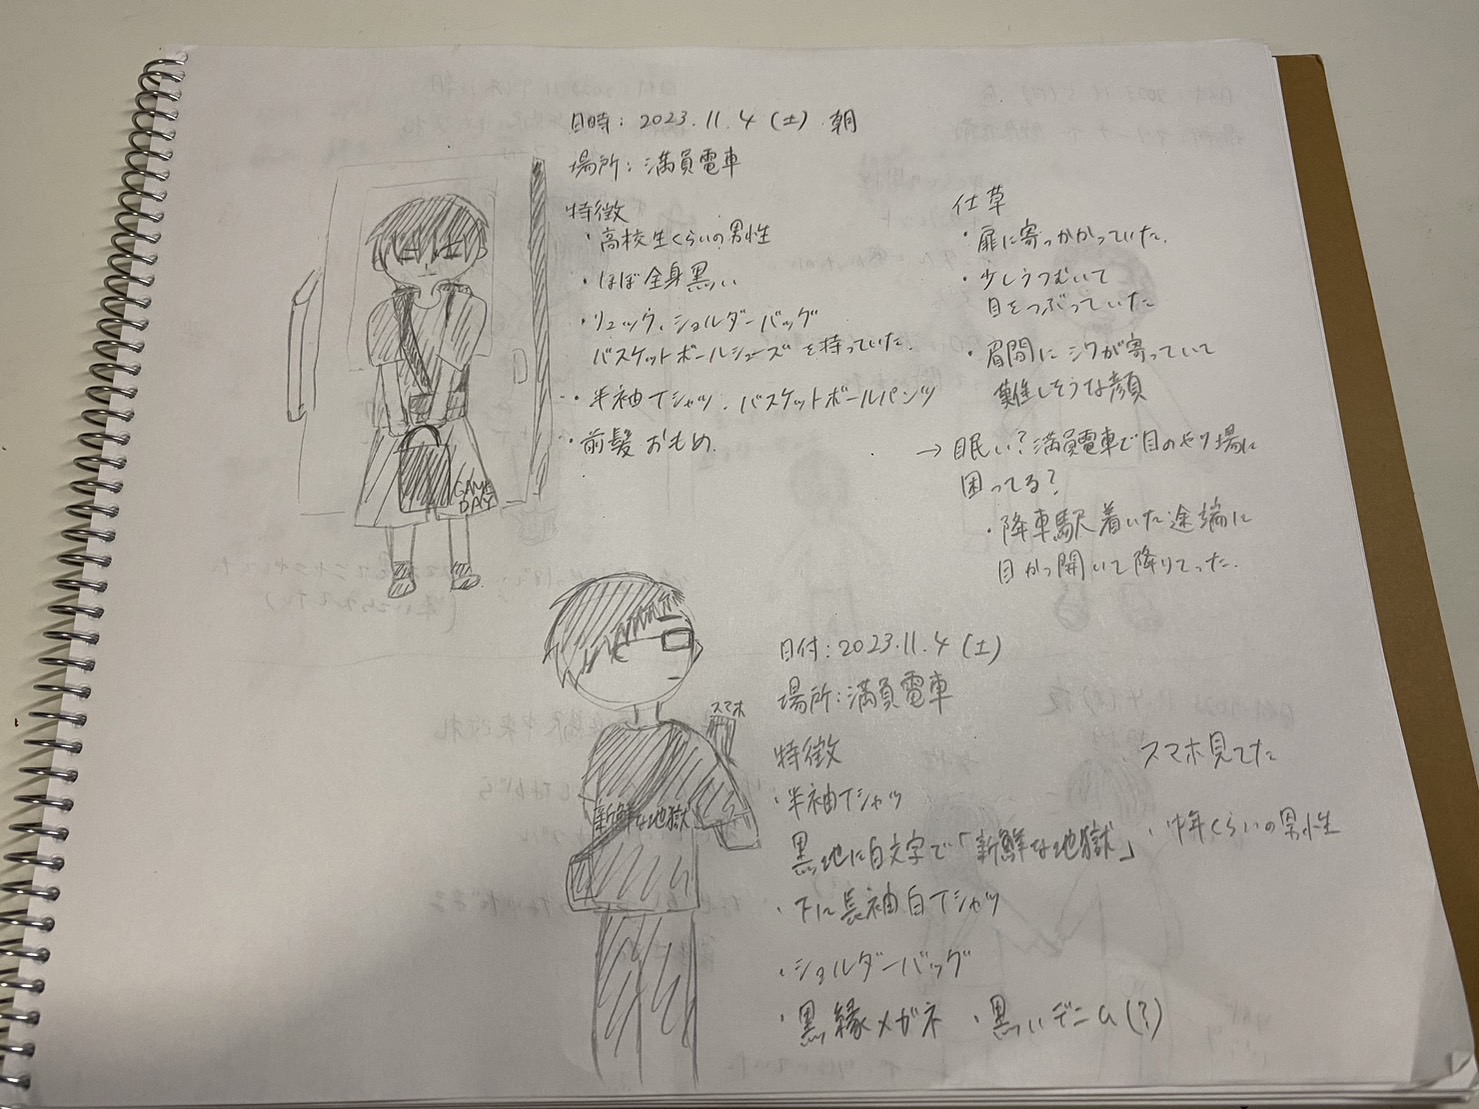 日時：2023.11.4（土）.朝
場所：満員電車
特徴
・高校生くらいの男性
・ほぼ全身黒い
・リュック、ショルダーバッグ
バスケットボールシューズを持っていた.
・半袖Tシャツ、バスケットボールパンツ
・前髪おもめ.
仕草
・扉に寄っかかっていた.
・少しうつむいて
目をつぶっていた
・眉間にシワが寄っていて
難しそうな顔
→眠い？満員電車で目のやり場に
困ってる？
・降車駅着いた途端に
目かっ開いて降りてった.
GAME
DAY
日付：2023.11.4（土）
場所：満員電車
特徴
・半袖Tシャツ
黒地に白文字で「新鮮な地獄」
・下に長袖白Tシャツ
・ショルダーバッグ
・黒縁メガネ ・黒いデニム(?)
・スマホ見てた
・中年くらいの男性
スマホ
新鮮な地獄